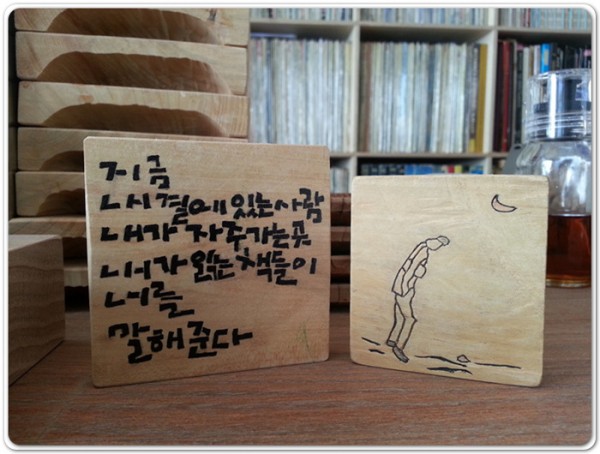 지금
내 곁에 있는 사람
내가 자주 가는 곳
내가 읽는 책들이
나를
말해준다